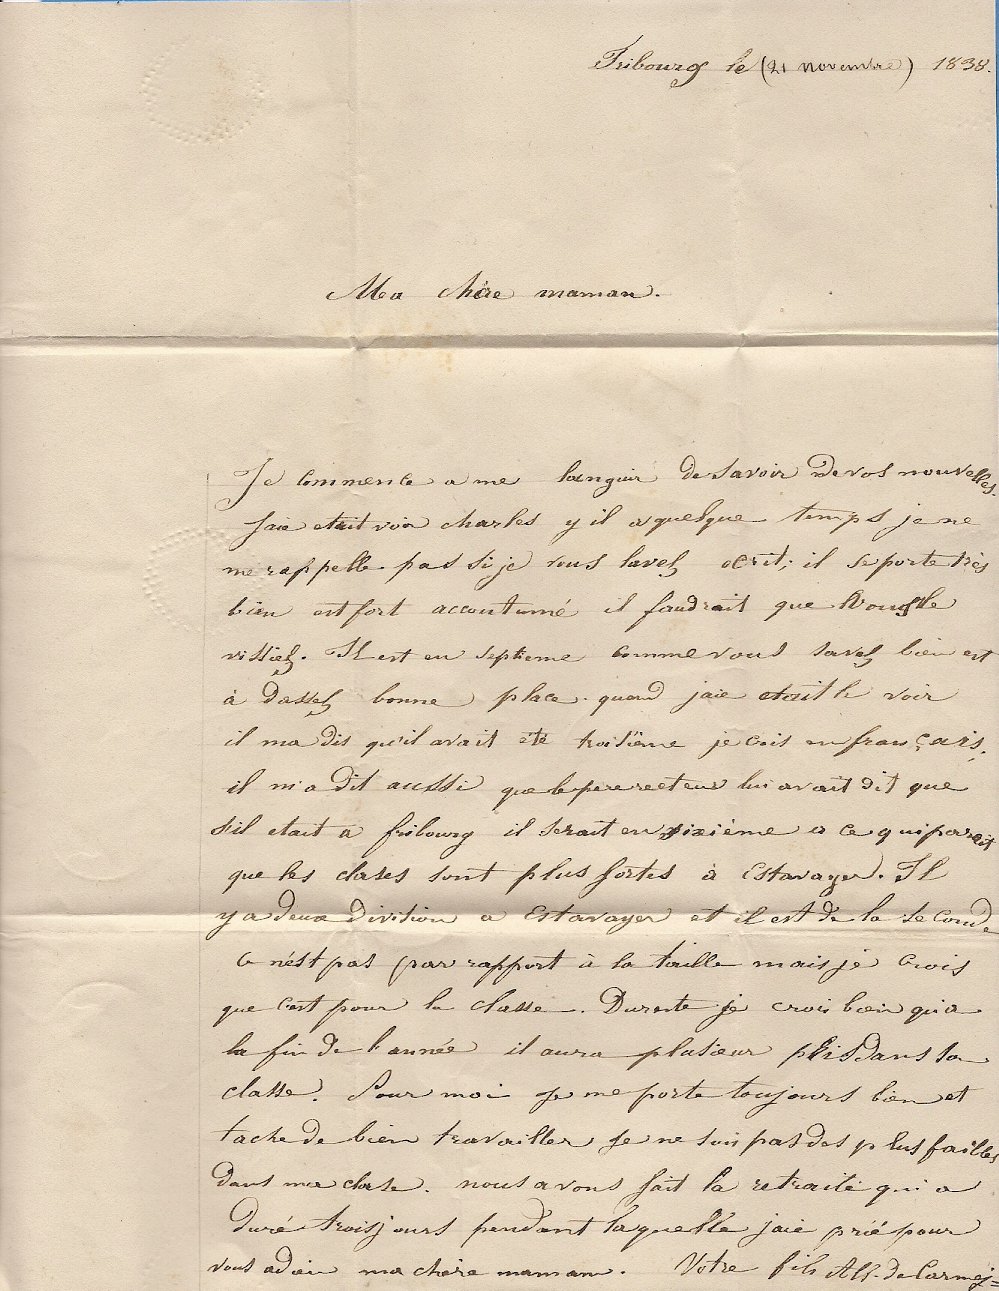 Fribourg le (21 novembre) 1838.
Ma chère maman.
Je commence a me languir de savoir de vos nouvelles.
jaie etait voir charles y il a quelque temps je ne
me rappelle pas si je vous lavez ecrit; il se porte très
bien est fort accoutumé il faudrait que vous le
vissiez. Il est en septieme comme vous savez bien est
à dassez bonne place. quand jaie etait le voir
il ma dis qu'il avait eté troisième je crois en français.
il m'a dit aussi que le pere recteur lui avait dit que
s'il etait a fribourg il serait en sixième a ce qui parait
que les clases sont plus fortes à Estavayer. Il
y a deux division a Estavayer et il est de la seconde
ce n'est pas par rapport à la taille mais je crois
que c'est pour la classe. Dureste je crois bien qu'a
la fin de l'année il aura plusieur pris dans sa
classe. Pour moi je me porte toujours bien et
tache de bien travailler je ne suis pas des plus failles
dans ma clase. nous avons fait la retraite qui a
duré trois jours pendant laquelle jaie prié pour
vous adieu ma chere maman. Votre fils Alf. de Carmej=